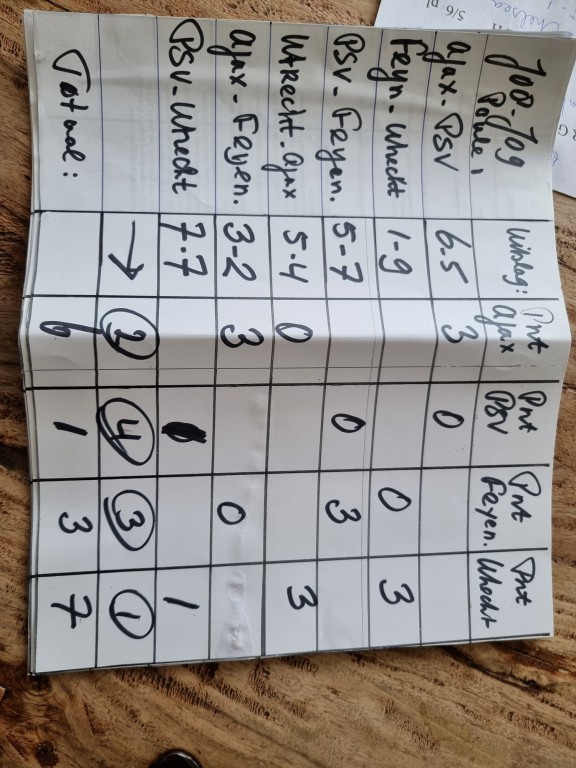 JO8-JO9 Poule 1 Uitslag: Pnt Ajax Pnt PSV Pnt Feyen. Pnt Utrecht
Ajax - PSV 6-5 3 0
Feyn - Utrecht 1-9 0 3
PSV - Feyen. 5-7 0 3
Utrecht - Ajax 5-4 0 3
Ajax - Feyen. 3-2 3 0
PSV - Utrecht 7-7 1 1
→ 2 4 3 1
Totaal: 6 1 3 7
5/6 pl
Chelsea